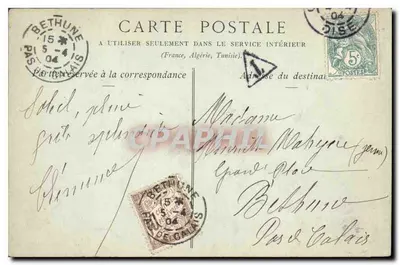 CARTE POSTALE
A UTILISER SEULEMENT DANS LE SERVICE INTÉRIEUR
(France, Algérie, Tunisie)
la correspondance
Adresse du destina
BETHUNE
15
5-4
04
PAS DE CALAIS
04
OISE
T
5
Soleil, pluie
grêle splendide
Clémence
Madame
Grand Place
Bethune
Pas de Calais
BETHUNE
15
5-4
04
PAS DE CALAIS